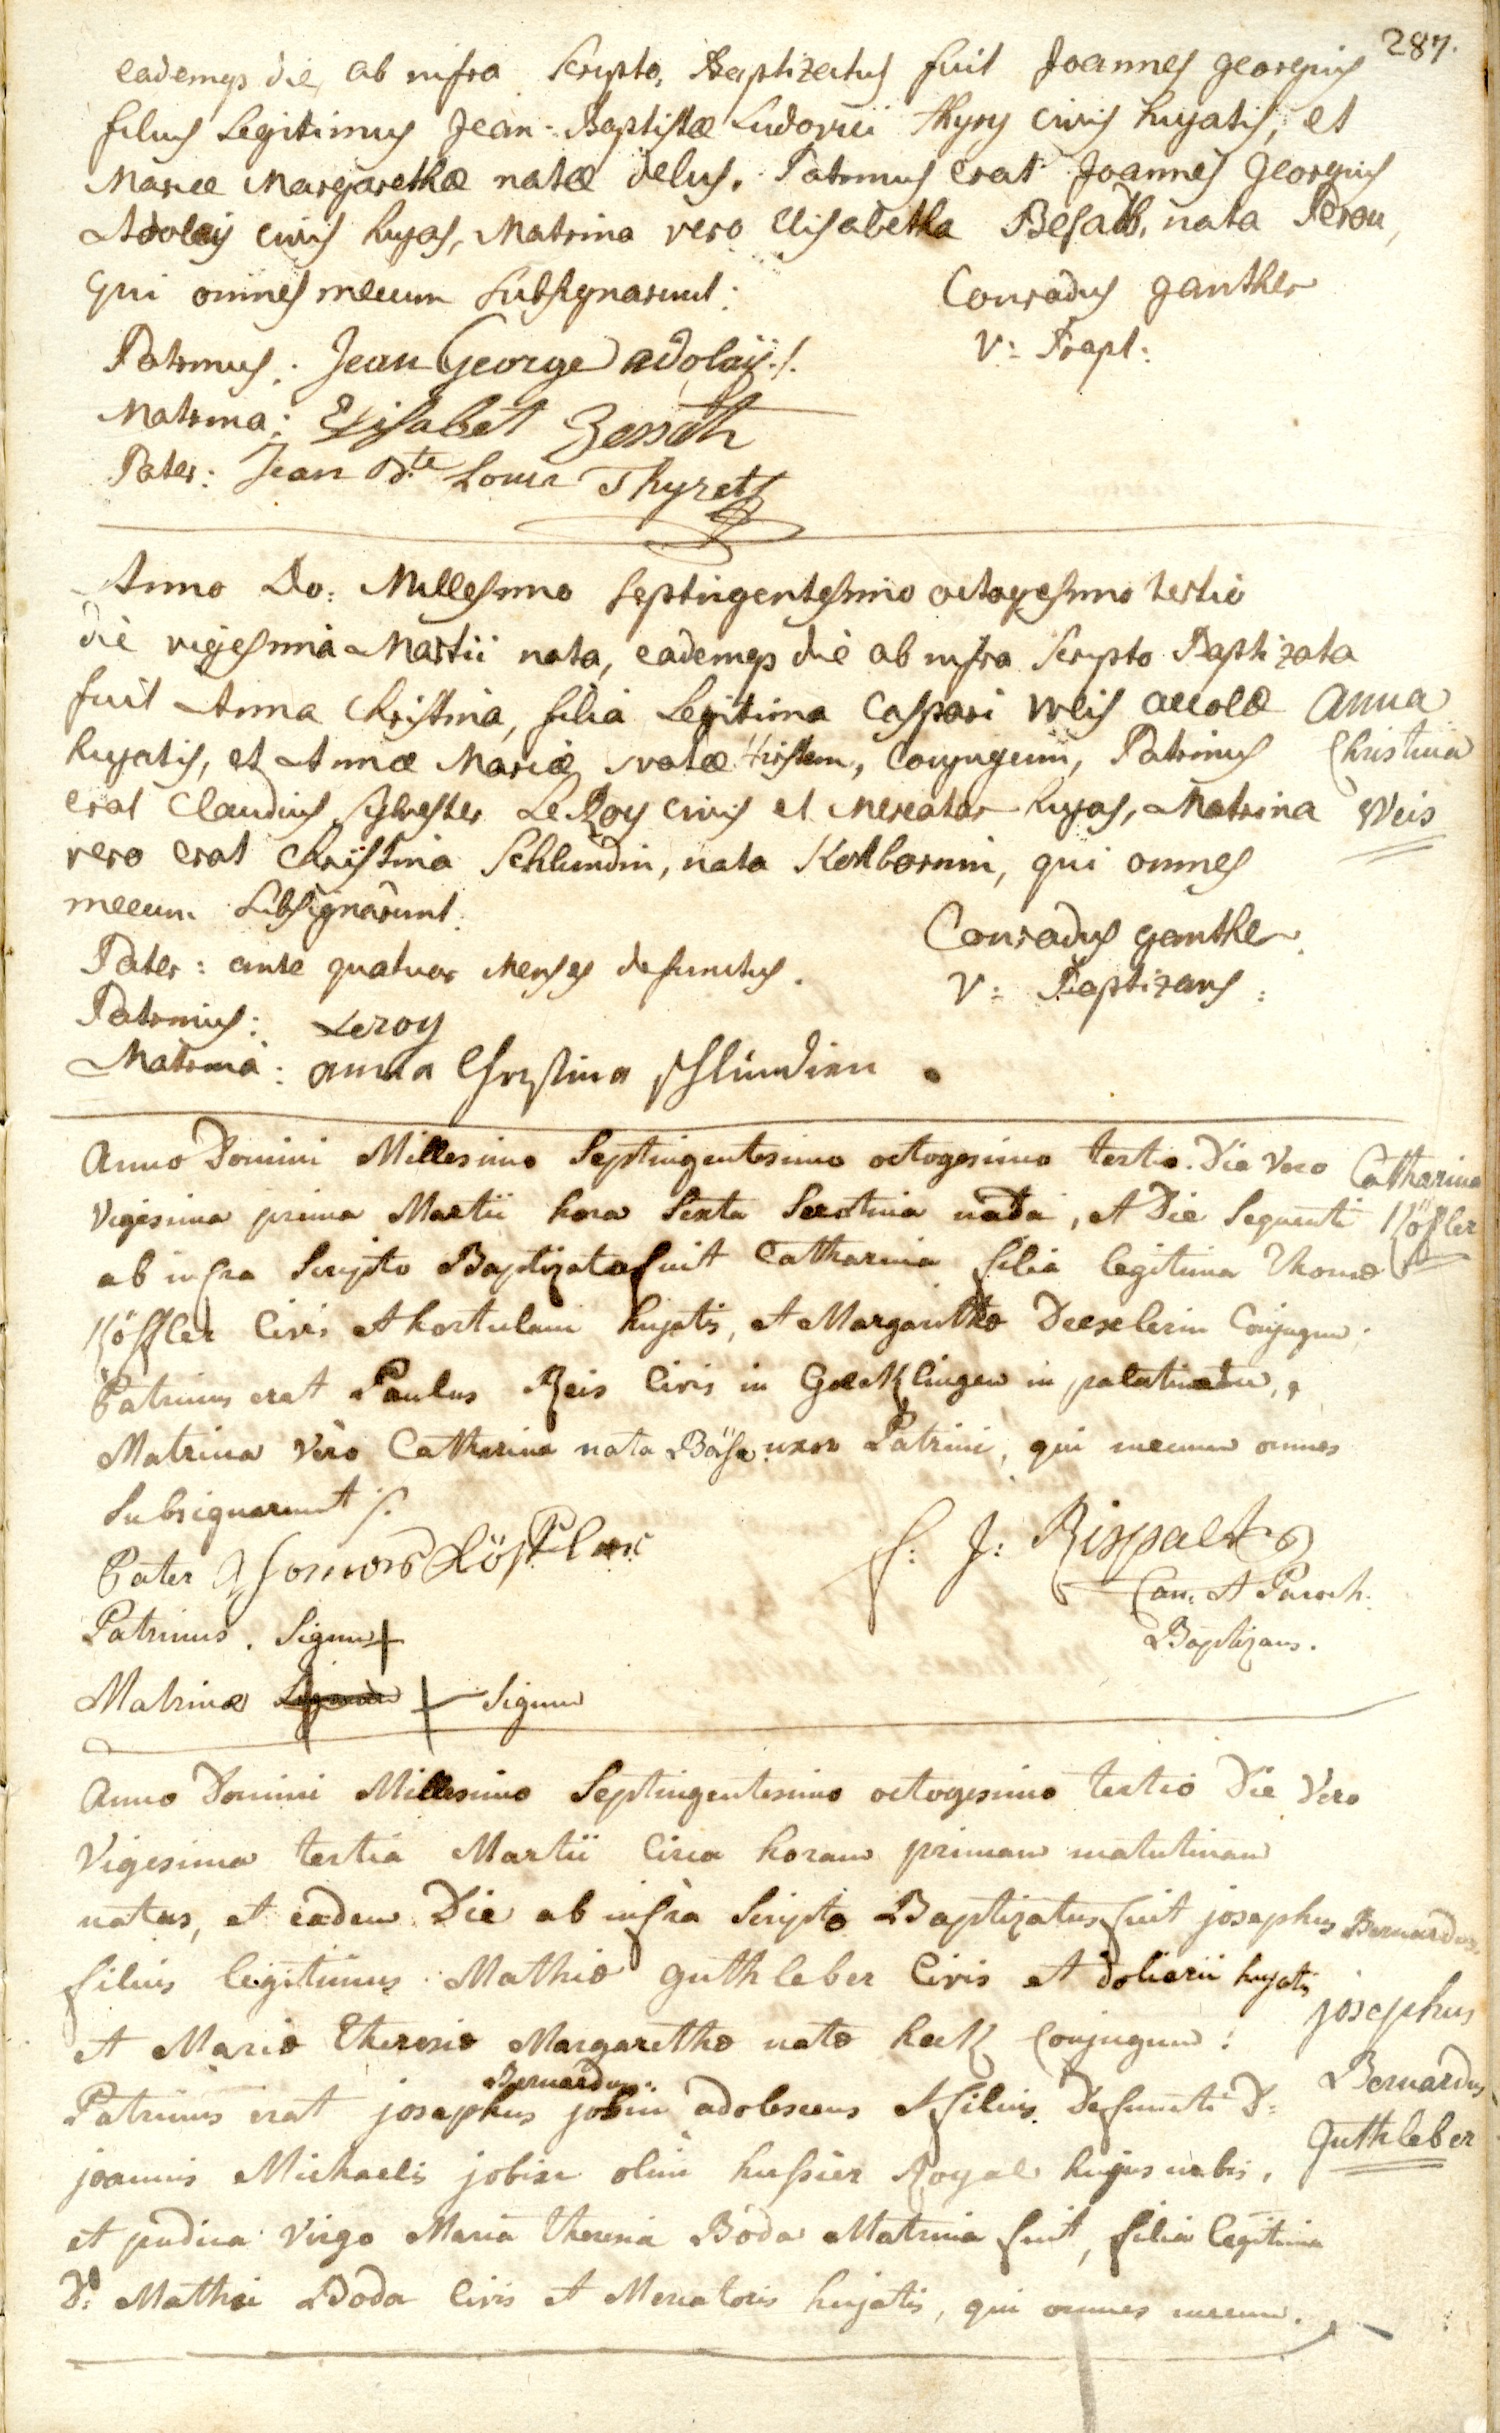 287.
eademqs die, ab infra scripto, Baptizatus fuit Joannes georgius
filius Legitimus Jean-Baptistæ Ludovici thyry civis hujatis, et
Mariæ Margarethæ natæ delus. Patrinus erat Joannes Georgius
Adolay civis hujas, Matrina vero Elisabetha Besath, nata Perou,
qui omnes mecum subsignarunt:
Conradus ganther
V: Bapt:
Patrinus: Jean George adolaÿ./.
Matrina: Elisabet Bessath
Pater: Jean Bte Louis Thyret
Anno Do: Millesimo septingentesimo octogesimo tertio
die vigesima Martii nata, eademqs die ab infra scripto Baptizata
fuit Anna Christina, filia Legitima Caspari Weis accolæ
hujatis, et Annæ Mariæ natæ hirstem, Conjugum, Patrinus
erat Claudius sylvester Le Roy civis et Mercator hujas, Matrina
vero erat Christina Schlundin, nata Kertbornin, qui omnes
mecum subsignarunt.
Anna
Christina
Weis
Conradus ganther
V: Baptizans:
Pater: ante quatuor Menses defunctus.
Patrinus: Leroy
Matrina: anna Christina Schlundien.
Anno Domini Millesimo Septingentesimo octogesimo tertio. Die Vero
Vigesima prima Martii hora Sexta Serotina nata, et Die Sequenti
ab infra Scripto Baptizata fuit Catharina filia legitima Thomæ
Köffler Civis et hortulani hujatis, et Margarithæ Drexlerin Conjugum;
Patrinus erat Paulus Reis Civis in GoeKlingen in palatinatu,
Matrina Vero Catharina nata Böhse uxor Patrini, qui mecum omnes
Subsignarunt ./.
Catharina
Köffler
Pater Thomas Köffler
Patrinus. Signum +
Matrinæ + Signum
f: J: Rispalts
Can. et Paroch.
Baptizans.
Anno Domini Millesimo Septingentesimo octogesimo tertio Die Vero
Vigesima tertia Martii Circa horam primam matutinam
natus, et eadem Die ab infra Scripto Baptizatus fuit josephus Bernardus
filius legitimus Mathiæ guthleber Civis et doliarii hujatis
et Mariæ Theresiæ Margarethæ natæ hecK Conjugum:
Patrinus erat josephus Bernardus jobin adolescens et filius Defuncti D:
joannis Michaelis jobin olim hussier Royal hujus urbis,
et pudica Virgo Maria Theresia Boda Matrina fuit, filia legitima
D: Mathæi Boda Civis et Mercatoris hujatis, qui omnes mecum.
josephus
Bernardus
Guthleber